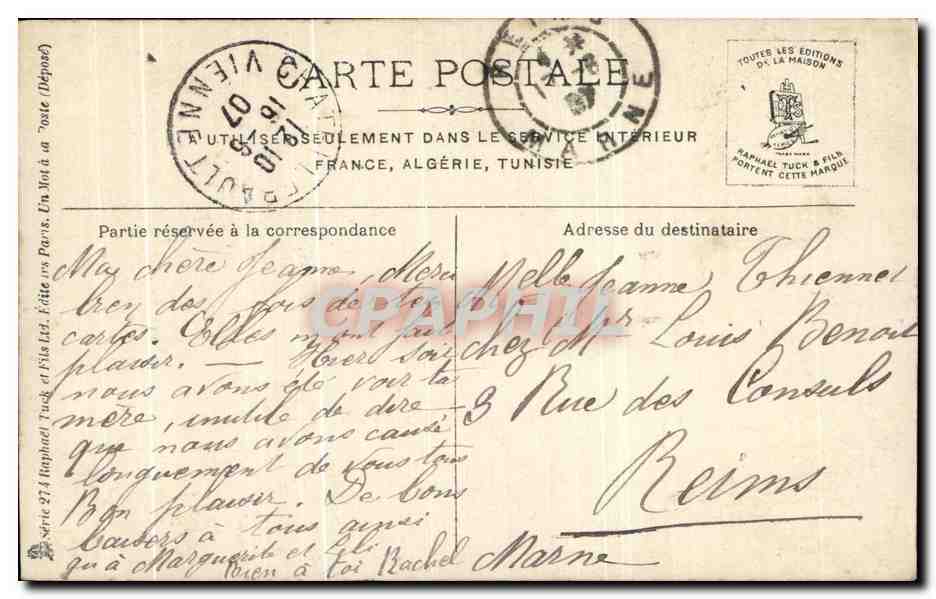 CARTE POSTALE
A UTILISER SEULEMENT DANS LE SERVICE INTÉRIEUR
FRANCE, ALGÉRIE, TUNISIE
TOUTES LES EDITIONS
DE LA MAISON
RAPHAEL TUCK & FILS
PORTENT CETTE MARQUE
CHATELLERAULT
VIENNE
18
07
MARNE
Partie réservée à la correspondance
Ma chère Jeanne, Merci
bien des fois de tes
cartes. Elles m'ont fait
plaisir. — Hier soir
nous avons été voir ta
mère, inutile de dire
que nous avons causé
longuement de vous tous
Bon plaisir. De bons
baisers à tous ainsi
qu'à Marguerite et
bien à toi Rachel
Adresse du destinataire
Melle Jeanne Thiennet
chez Mr Louis Benoit
3 Rue des Consuls
Reims
Marne
Série 274 Raphael Tuck et Fils Ltd. Editeurs Paris. Un Mot à la Poste (Déposé)
CPAPHIL